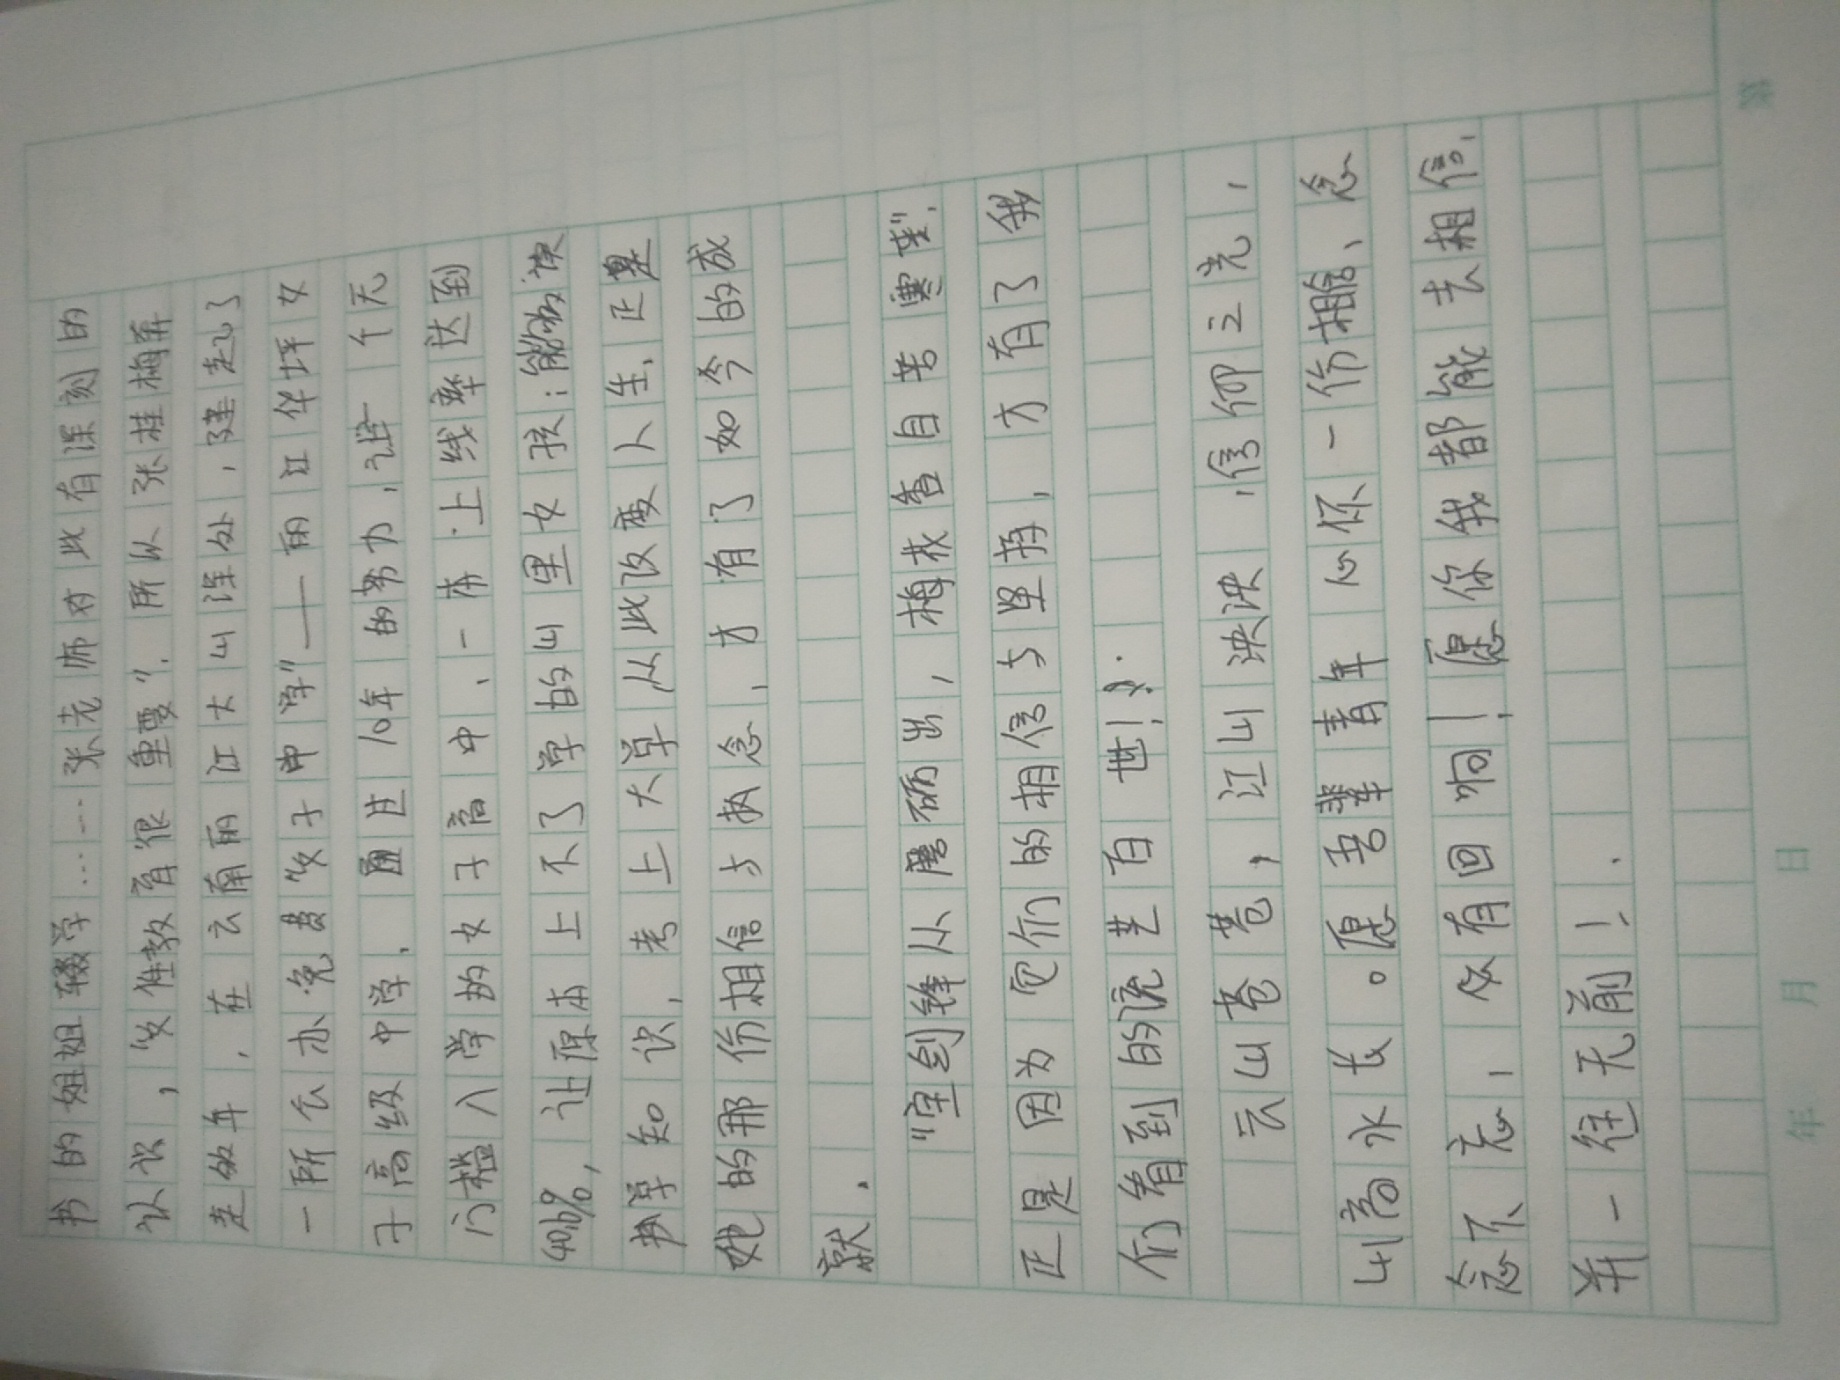 书的姐姐辍学……张老师对此有深刻的
认识，“女性教育很重要”。所以张桂梅奔
走数年，在云南丽江大山深处，建起了
一所公办免费“女子中学”——丽江华坪女
子高级中学。通过10年的努力，让一个无
门槛入学的女子高中，一本上线率达到
40.6%，让原本上不了学的山里女孩：能够读
书学知识，考上大学，从此改变人生。正是
她的那份相信与执念，才有了如今的成
就。
“宝剑锋从磨砺出，梅花香自苦寒来”。
正是因为它们的相信与坚持，才有了我
们看到的流芳百世！
云山苍苍，江山泱泱，信仰之光，
山高水长。愿吾辈青年心怀一份相信、念
念不忘，必有回响！愿你我都能去相信，
并一往无前！
第
年 月 日